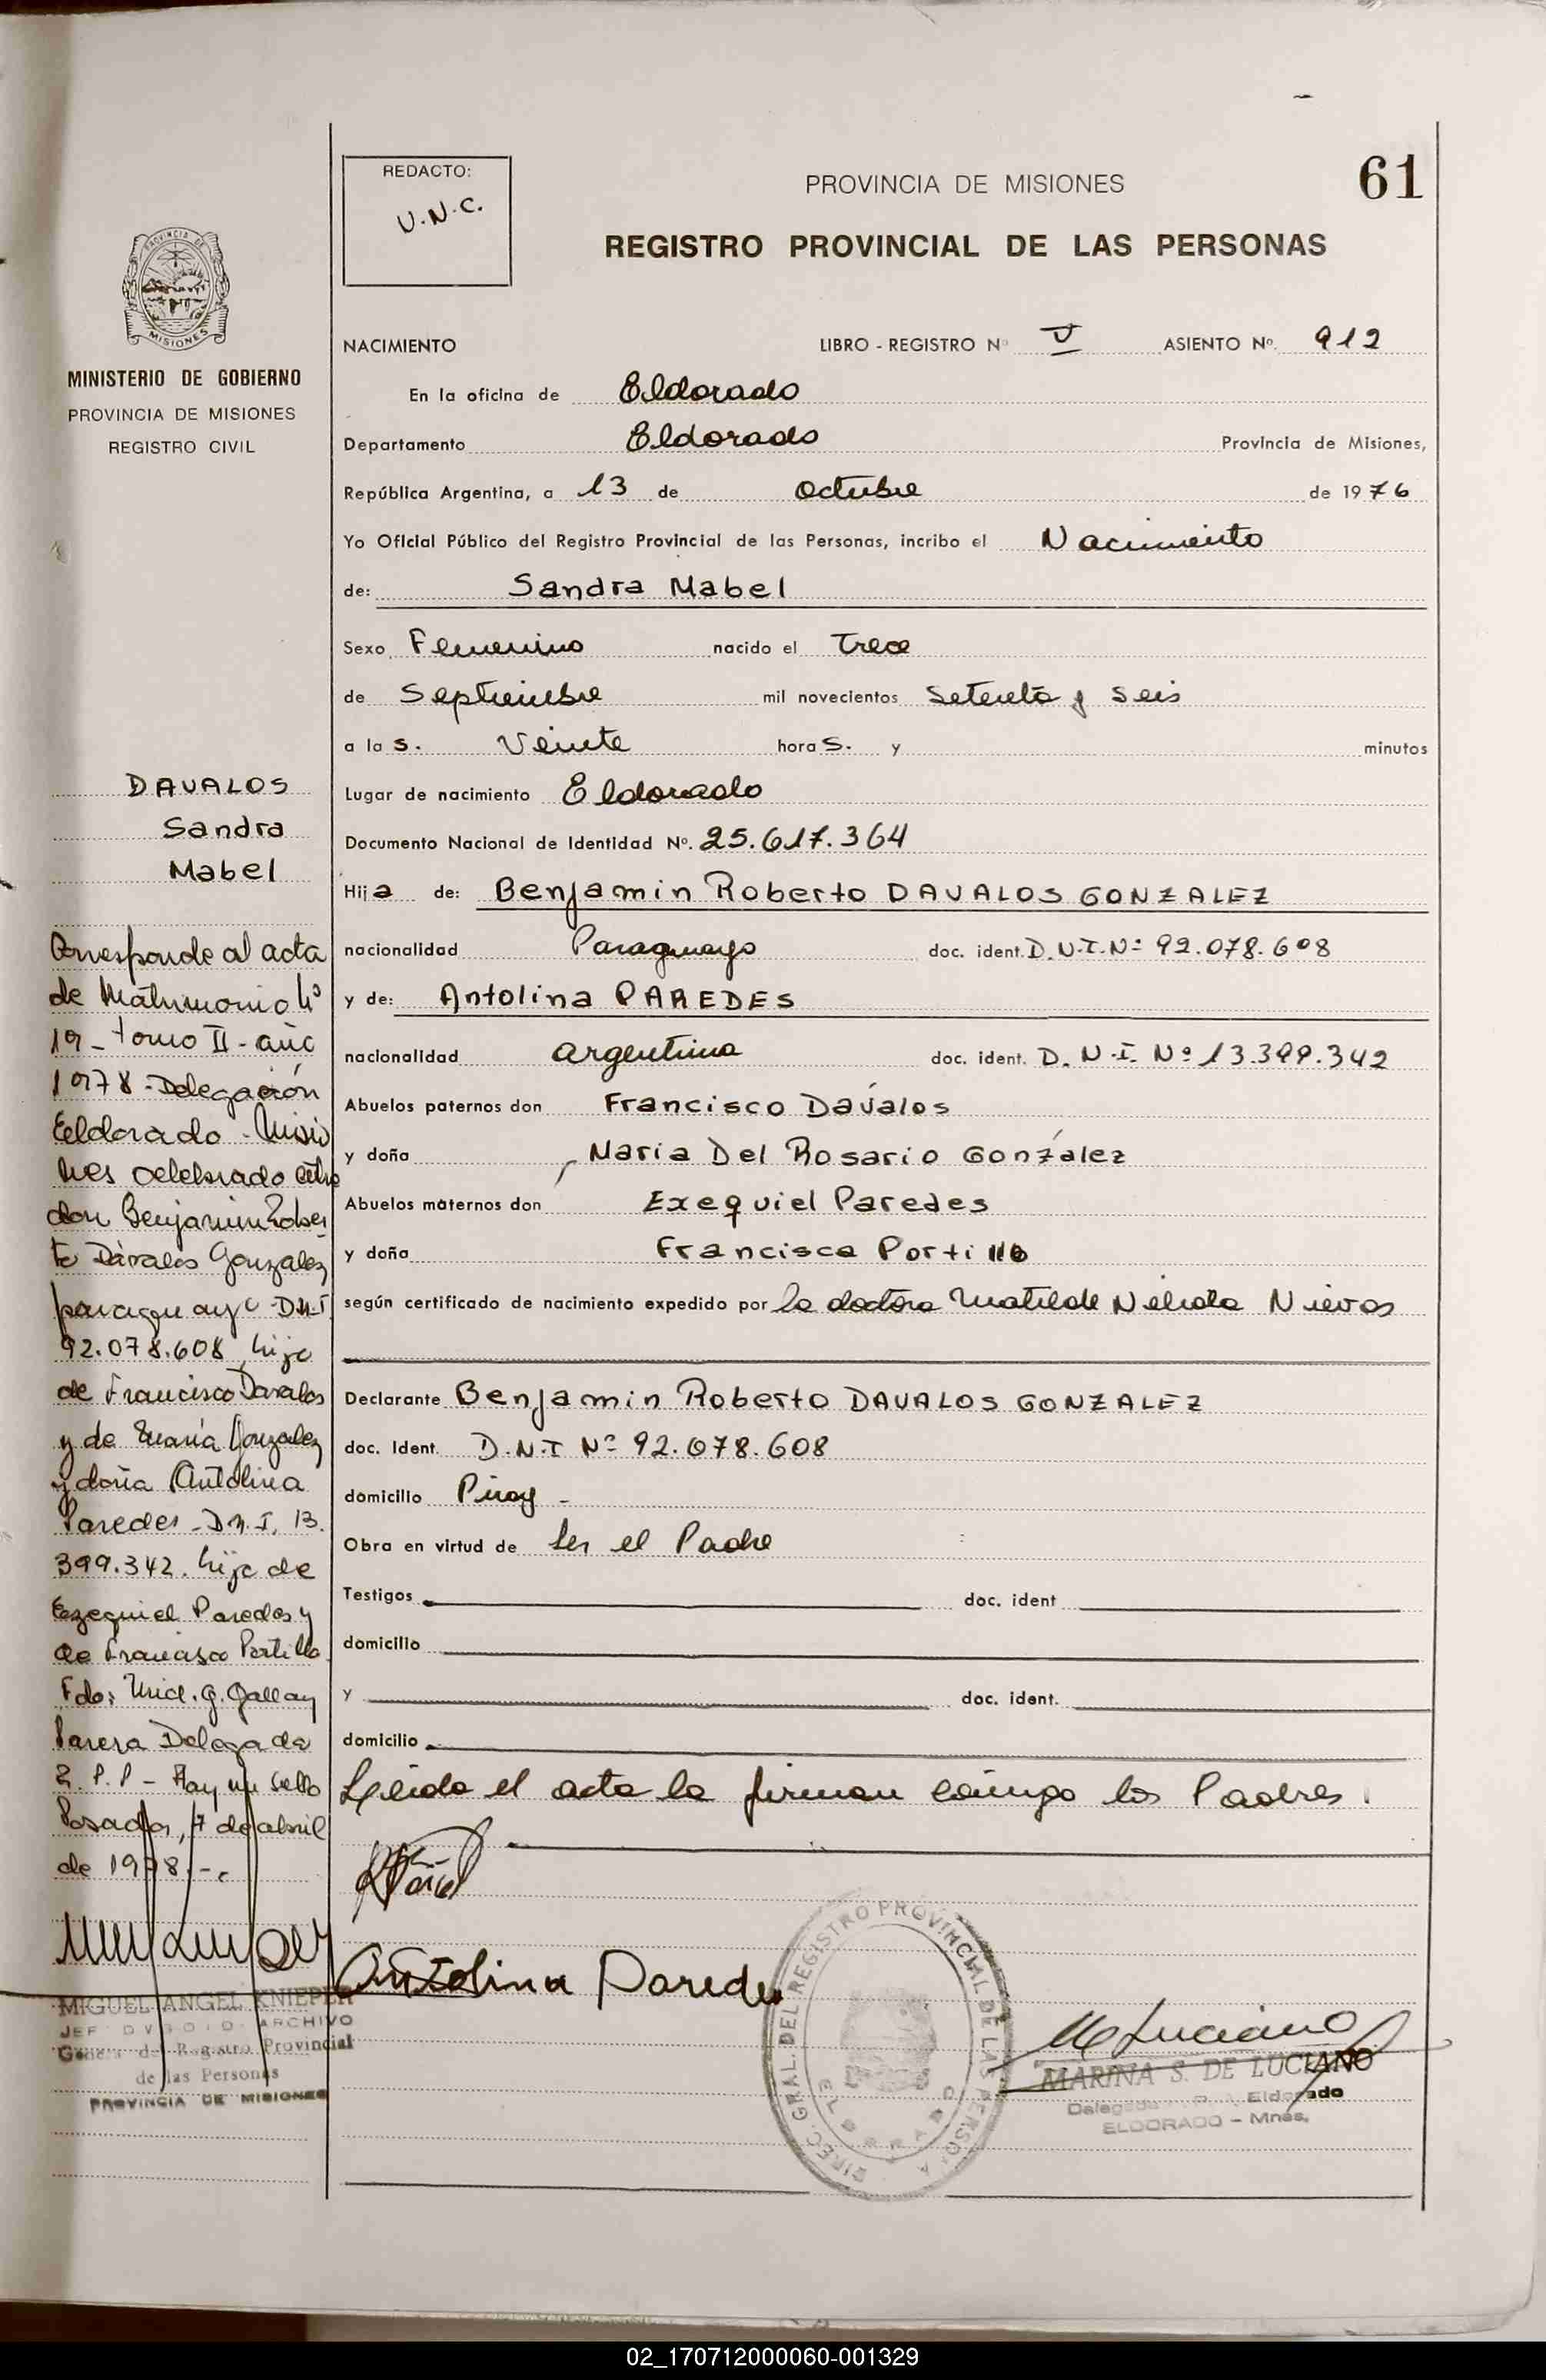 61
REDACTO:
U.N.C.
PROVINCIA DE MISIONES
REGISTRO PROVINCIAL DE LAS PERSONAS
MISIONES
MINISTERIO DE GOBIERNO
PROVINCIA DE MISIONES
REGISTRO CIVIL
NACIMIENTO LIBRO - REGISTRO Nº V ASIENTO Nº. 912
En la oficina de Eldorado
Departamento Eldorado Provincia de Misiones,
República Argentina, a 13 de octubre de 1976
Yo Oficial Público del Registro Provincial de las Personas, incribo el Nacimiento
de: Sandra Mabel
Sexo Femenino nacido el Trece
de Septiembre mil novecientos Setenta y Seis
a las. Veinte horas. y minutos
Lugar de nacimiento Eldorado
Documento Nacional de Identidad Nº. 25.617.364
Hija de: Benjamin Roberto DAVALOS GONZALEZ
nacionalidad Paraguayo doc. ident. D.N.I.Nº 92.078.608
y de: Antolina PAREDES
nacionalidad argentina doc. ident. D.N.I. Nº 13.399.342
Abuelos paternos don Francisco Dávalos
y doña Maria Del Rosario González
Abuelos maternos don Exequiel Paredes
y doña Francisca Portillo
según certificado de nacimiento expedido por la doctora Matilde Nievas
Declarante Benjamin Roberto DAVALOS GONZALEZ
doc. Ident. D.N.I Nº 92.078.608
domicilio Piray -
Obra en virtud de Ser el Padre
Testigos doc. ident
domicilio
y doc. ident.
domicilio
Leída el acta la firman conmigo los Padres.
Antolina Paredes
DIREC. GRAL. DEL REGISTRO PROVINCIAL DE LAS PERSONAS
ELDORADO
MARINA S. DE LUCIANO
Delegada Eldorado
ELDORADO - Mnes.
DAVALOS
Sandra
Mabel
Corresponde al acta
de Matrimonio Nº
19 - tomo II - año
1978 - Delegación
Eldorado - Misio
nes celebrado entre
don Benjamin Rober
to Dávalos Gonzalez
paraguayo - D.N.I
92.078.608 hijo
de Francisco Davalos
y de María Gonzalez
y doña Antolina
Paredes - D.N.I. 13.
399.342. hija de
Ezequiel Paredes y
de Francisca Portillo
Fdo: G. Gallay
Parera Delegada
R.P.P - Hay un sello
Posadas, 7 de abril
de 1978.-
MIGUEL ANGEL KNIEPER
ARCHIVO
General del Registro Provincial
de las Personas
PROVINCIA DE MISIONES
02_170712000060-001329